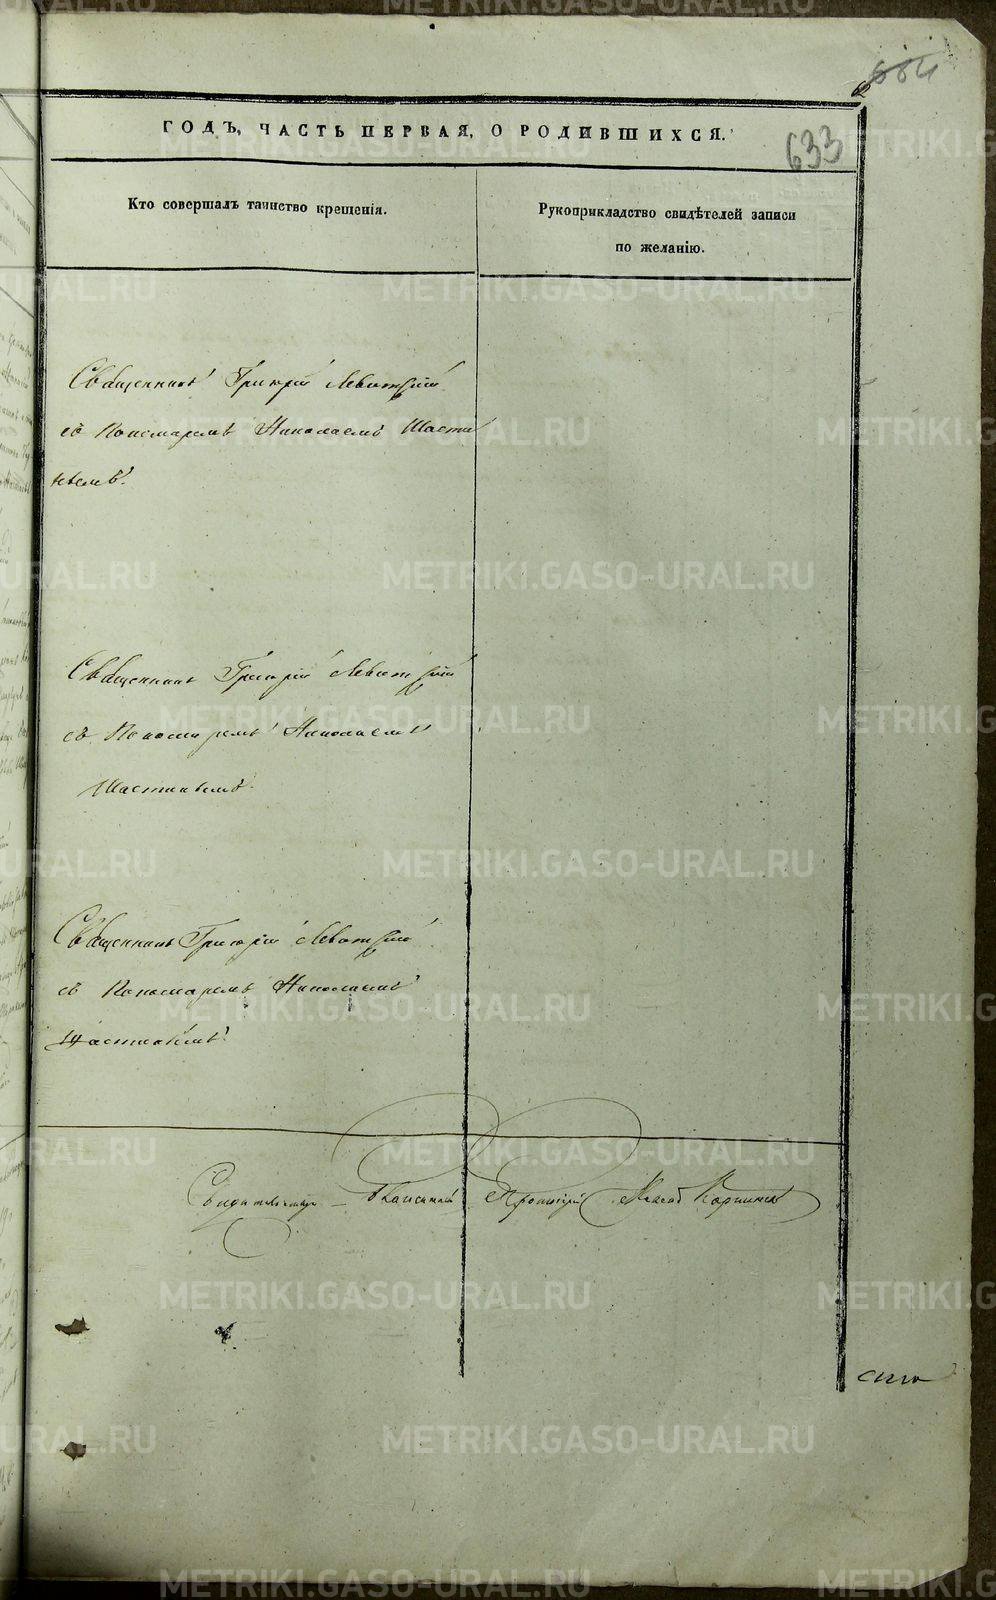 684
ГОДЪ, ЧАСТЬ ПЕРВАЯ, О РОДИВШИХСЯ.
633
Кто совершалъ таинство крещенія.
Рукоприкладство свидѣтелей записи
по желанію.
Священникъ Григорій Левитскій
съ Пономаремъ Николаемъ Шасти
невымъ.
Священникъ Григорій Левитскій
съ Пономаремъ Николаемъ
Священникъ Григорій Левитскій
съ Пономаремъ Николаемъ
Протоіерей
METRIKI.GASO-URAL.RU